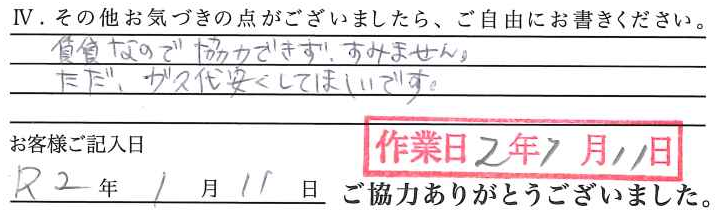 Ⅳ．その他お気づきの点がございましたら、ご自由にお書きください。
賃貸なので協力できず、すみません。
ただ、ガス代安くしてほしいです。
お客様ご記入日
作業日 2年 1月 11日
R2年 1月 11日 ご協力ありがとうございました。